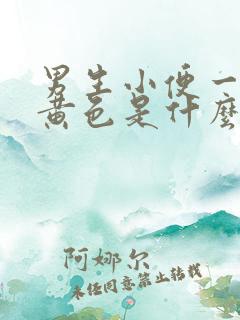 男生小便一
黄色是什麼
阿娜尔
未经同意禁止转载